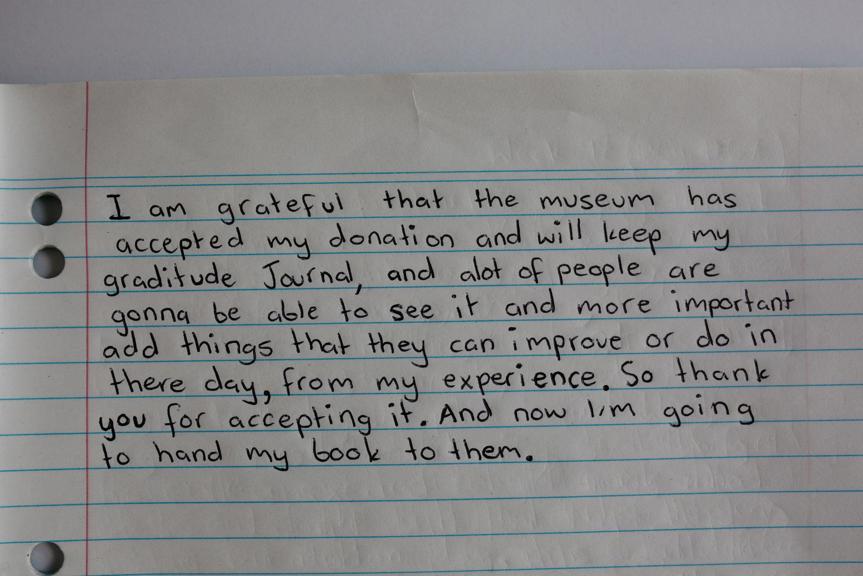 I am grateful that the museum has
accepted my donation and will keep my
graditude Journal, and alot of people are
gonna be able to see it and more important
add things that they can improve or do in
there day, from my experience. So thank
you for accepting it. And now I'm going
to hand my book to them.